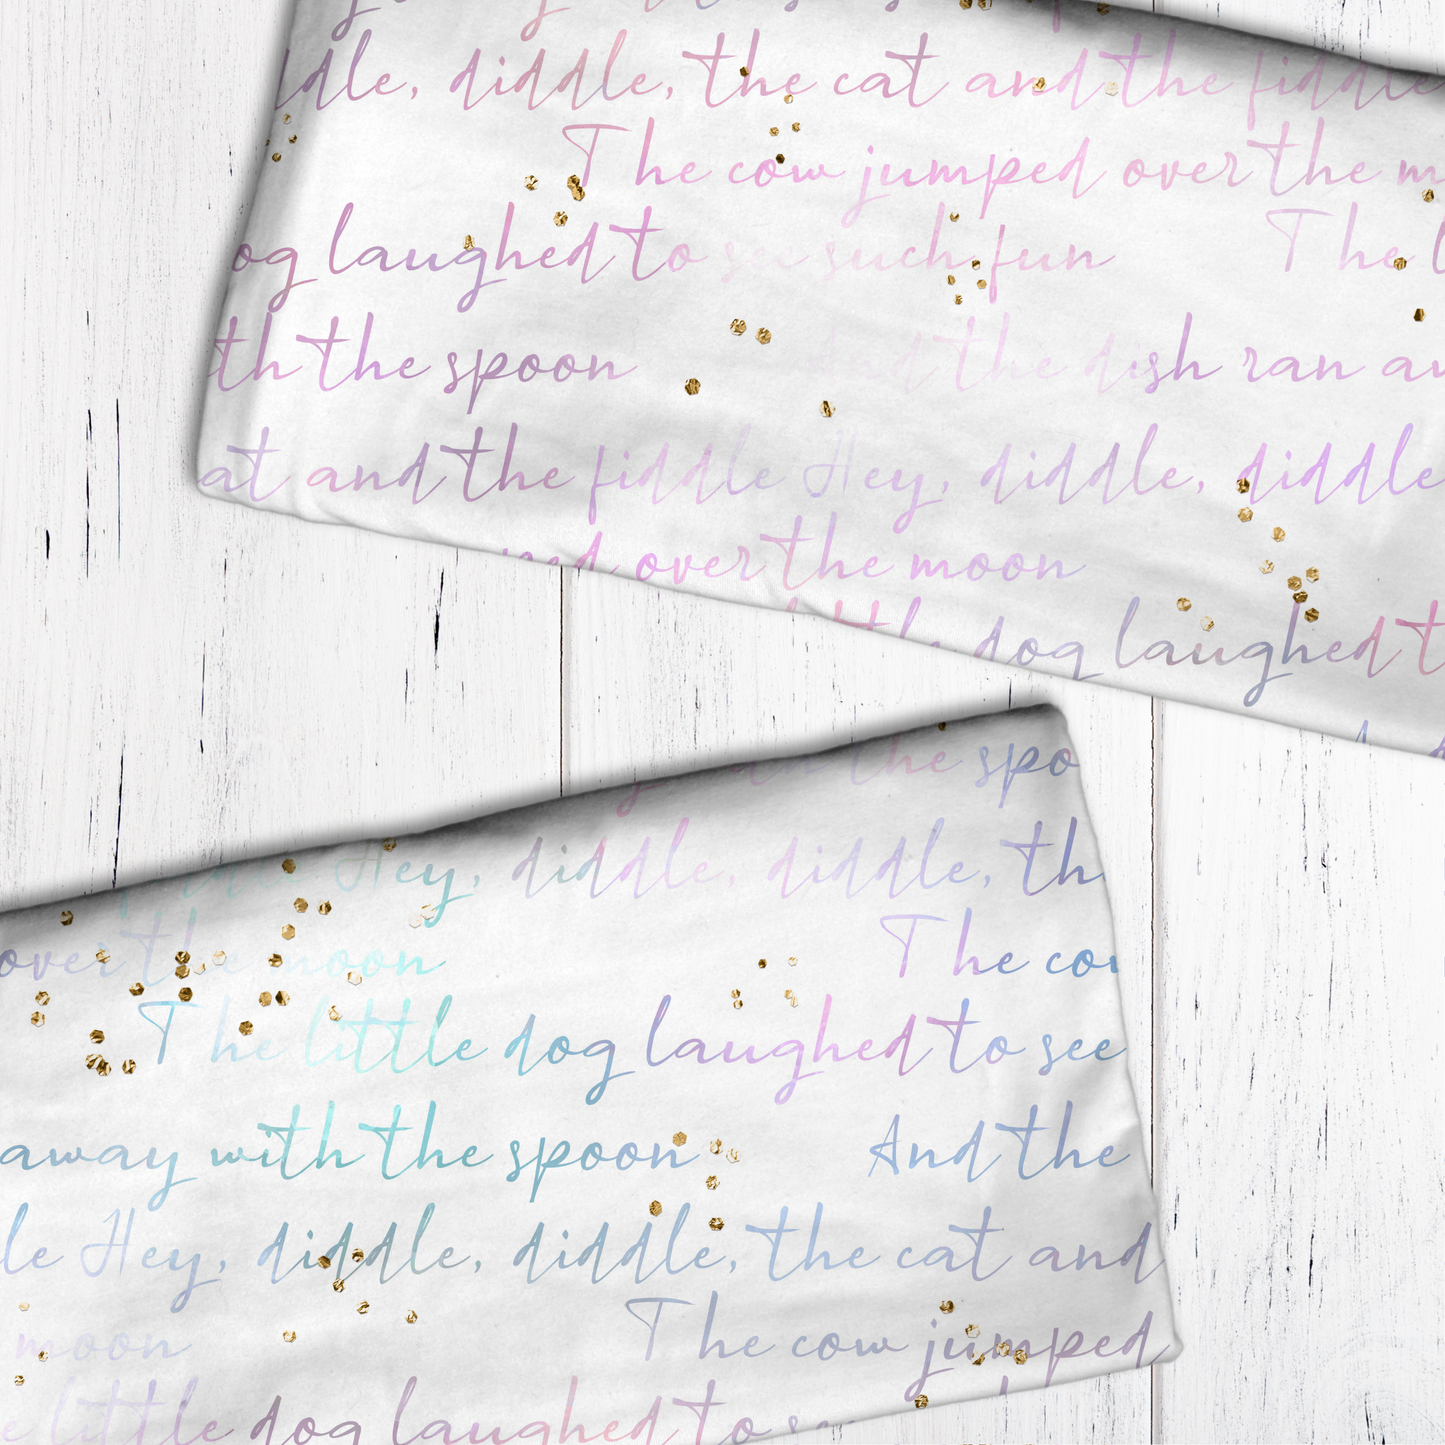 dle, diddle, the cat and the fiddle
The cow jumped over the m
og laughed to see such fun The l
th the spoon And the dish ran aw
at and the fiddle Hey, diddle, diddle
ped over the moon
ttle dog laughed t
the spo
Hey, diddle, diddle, th
over the moon The cow
The little dog laughed to see
away with the spoon And the
le Hey, diddle, diddle, the cat and
moon The cow jumped
e little dog laughed to